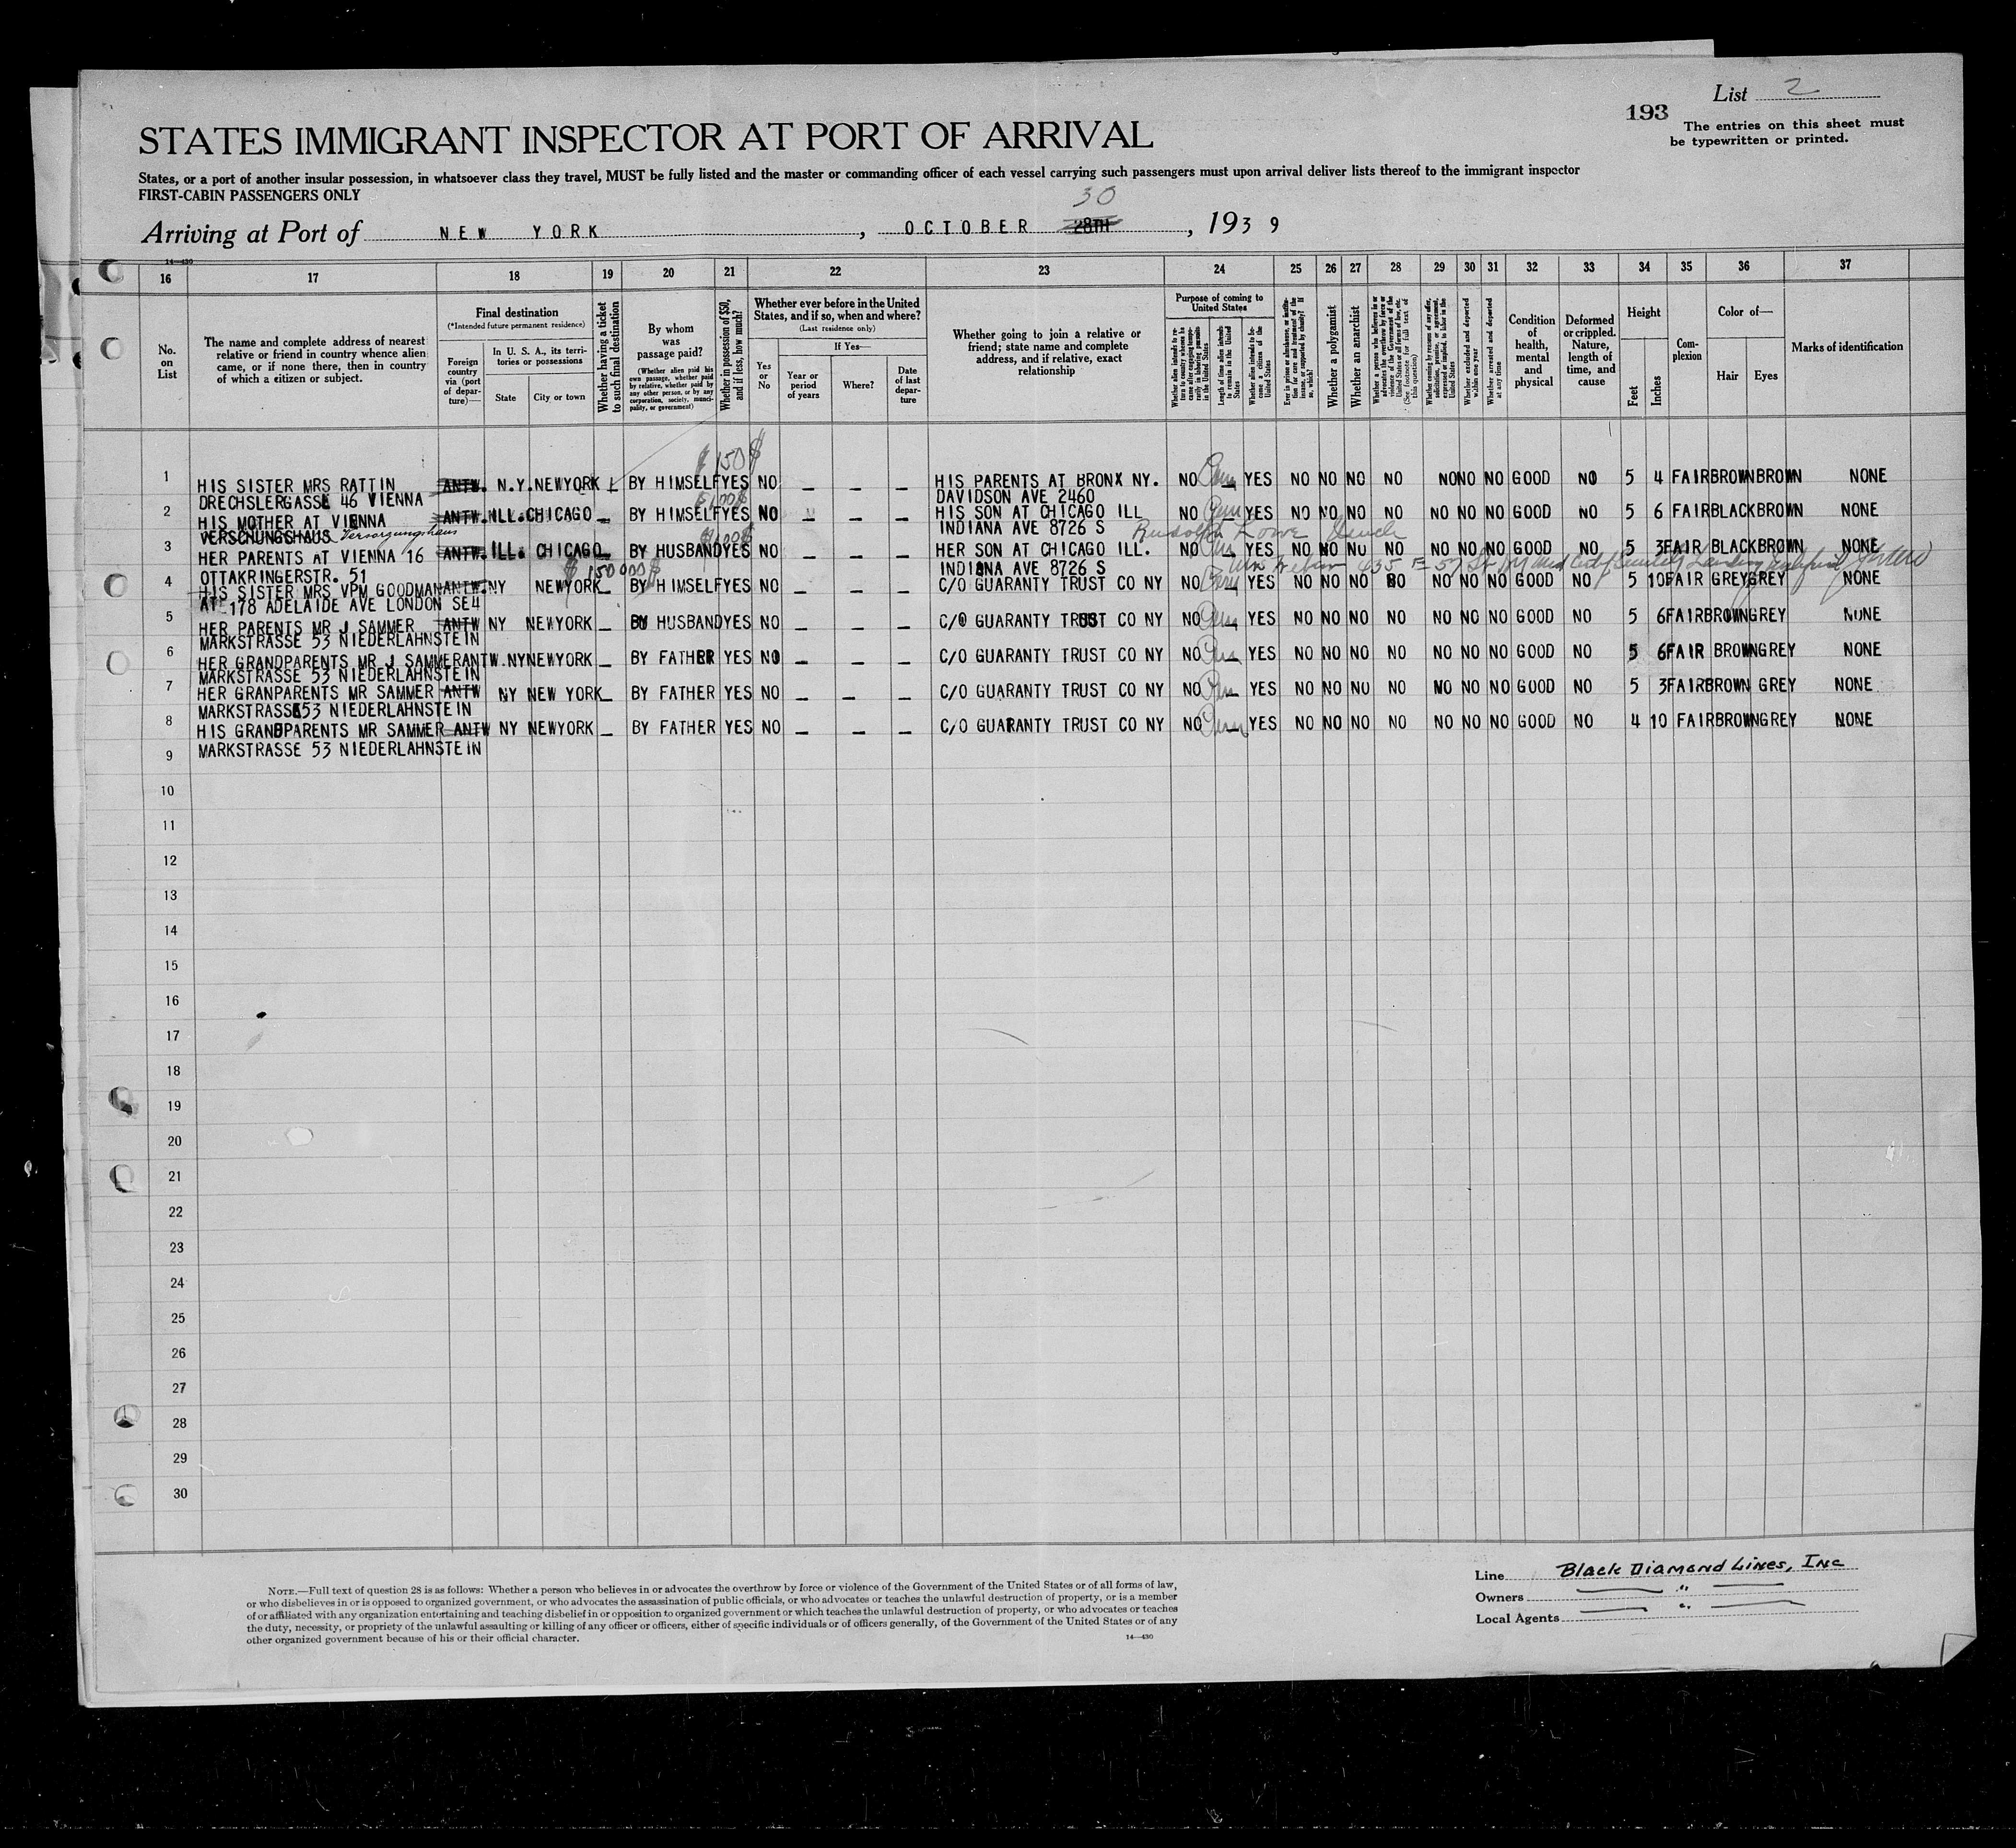 List 2
193
The entries on this sheet must
be typewritten or printed.
STATES IMMIGRANT INSPECTOR AT PORT OF ARRIVAL
States, or a port of another insular possession, in whatsoever class they travel, MUST be fully listed and the master or commanding officer of each vessel carrying such passengers must upon arrival deliver lists thereof to the immigrant inspector
FIRST-CABIN PASSENGERS ONLY
30
Arriving at Port of NEW YORK, OCTOBER 28TH, 1939
14—430
16 17 18 19 20 21 22 23 24 25 26 27 28 29 30 31 32 33 34 35 36 37
No. on List
The name and complete address of nearest relative or friend in country whence alien came, or if none there, then in country of which a citizen or subject.
Final destination
(*Intended future permanent residence)
Foreign country via (port of departure)—
In U. S. A., its territories or possessions
State
City or town
Whether having a ticket to such final destination
By whom was passage paid?
(Whether alien paid his own passage, whether paid by relative, whether paid by any other person, or by any corporation, society, municipality, or government)
Whether in possession of $50, and if less, how much?
Whether ever before in the United States, and if so, when and where?
(Last residence only)
Yes or No
If Yes—
Year or period of years
Where?
Date of last departure
Whether going to join a relative or friend; state name and complete address, and if relative, exact relationship
Purpose of coming to United States
Length of time alien intends to remain in the United States
Whether alien intends to become a citizen of the United States
Whether a polygamist
Whether an anarchist
Whether excluded and deported within one year
Whether arrested and deported at any time
Condition of health, mental and physical
Deformed or crippled. Nature, length of time, and cause
Height
Feet
Inches
Complexion
Color of—
Hair
Eyes
Marks of identification
$ 150 $
1 HIS SISTER MRS RATTIN ANTW. N.Y. NEWYORK BY HIMSELF YES NO — — — HIS PARENTS AT BRONX NY. NO YES NO NO NO NO NO NO NO GOOD NO 5 4 FAIR BROWN BROWN NONE
DRECHSLERGASSE 46 VIENNA DAVIDSON AVE 2460
2 HIS MOTHER AT VIENNA ANTW. ILL. CHICAGO — BY HIMSELF YES NO — — — HIS SON AT CHICAGO ILL NO YES NO NO NO NO NO NO NO GOOD NO 5 6 FAIR BLACK BROWN NONE
VERSCHUNGSHAUS Versorgungshaus INDIANA AVE 8726 S
3 HER PARENTS AT VIENNA 16 ANTW. ILL. CHICAGO — BY HUSBAND YES NO — — — HER SON AT CHICAGO ILL. NO YES NO NO NO NO NO NO NO GOOD NO 5 3 FAIR BLACK BROWN NONE
OTTAKRINGERSTR. 51 $ 150 000 $ INDIANA AVE 8726 S
4 HIS SISTER MRS VPM GOODMAN ANTW. NY NEWYORK — BY HIMSELF YES NO — — — C/O GUARANTY TRUST CO NY NO YES NO NO NO NO NO NO NO GOOD NO 5 10 FAIR GREY GREY NONE
AT 178 ADELAIDE AVE LONDON SE4
5 HER PARENTS MR J SAMMER ANTW NY NEWYORK — BY HUSBAND YES NO — — — C/O GUARANTY TRUST CO NY NO YES NO NO NO NO NO NO NO GOOD NO 5 6 FAIR BROWN GREY NONE
MARKSTRASSE 53 NIEDERLAHNSTEIN
6 HER GRANDPARENTS MR J SAMMER ANTW. NY NEWYORK — BY FATHER YES NO — — — C/O GUARANTY TRUST CO NY NO YES NO NO NO NO NO NO NO GOOD NO 5 6 FAIR BROWN GREY NONE
MARKSTRASSE 53 NIEDERLAHNSTEIN
7 HER GRANPARENTS MR SAMMER ANTW NY NEW YORK — BY FATHER YES NO — — — C/O GUARANTY TRUST CO NY NO YES NO NO NO NO NO NO NO GOOD NO 5 3 FAIR BROWN GREY NONE
MARKSTRASSE 53 NIEDERLAHNSTEIN
8 HIS GRANDPARENTS MR SAMMER ANTW NY NEWYORK — BY FATHER YES NO — — — C/O GUARANTY TRUST CO NY NO YES NO NO NO NO NO NO NO GOOD NO 4 10 FAIR BROWN GREY NONE
MARKSTRASSE 53 NIEDERLAHNSTEIN
9
10
11
12
13
14
15
16
17
18
19
20
21
22
23
24
25
26
27
28
29
30
NOTE.—Full text of question 28 is as follows: Whether a person who believes in or advocates the overthrow by force or violence of the Government of the United States or of all forms of law,
or who disbelieves in or is opposed to organized government, or who advocates the assassination of public officials, or who advocates or teaches the unlawful destruction of property, or is a member
of or affiliated with any organization entertaining and teaching disbelief in or opposition to organized government or which teaches the unlawful destruction of property, or who advocates or teaches
the duty, necessity, or propriety of the unlawful assaulting or killing of any officer or officers, either of specific individuals or of officers generally, of the Government of the United States or of any
other organized government because of his or their official character.
14—430
Line Black Diamond Lines, Inc
Owners "
Local Agents "